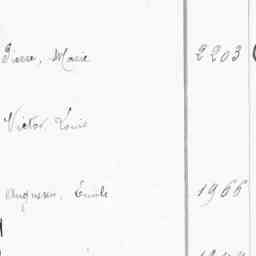 Pierre, Marie 2203
Victor, Louis
Emile 1966